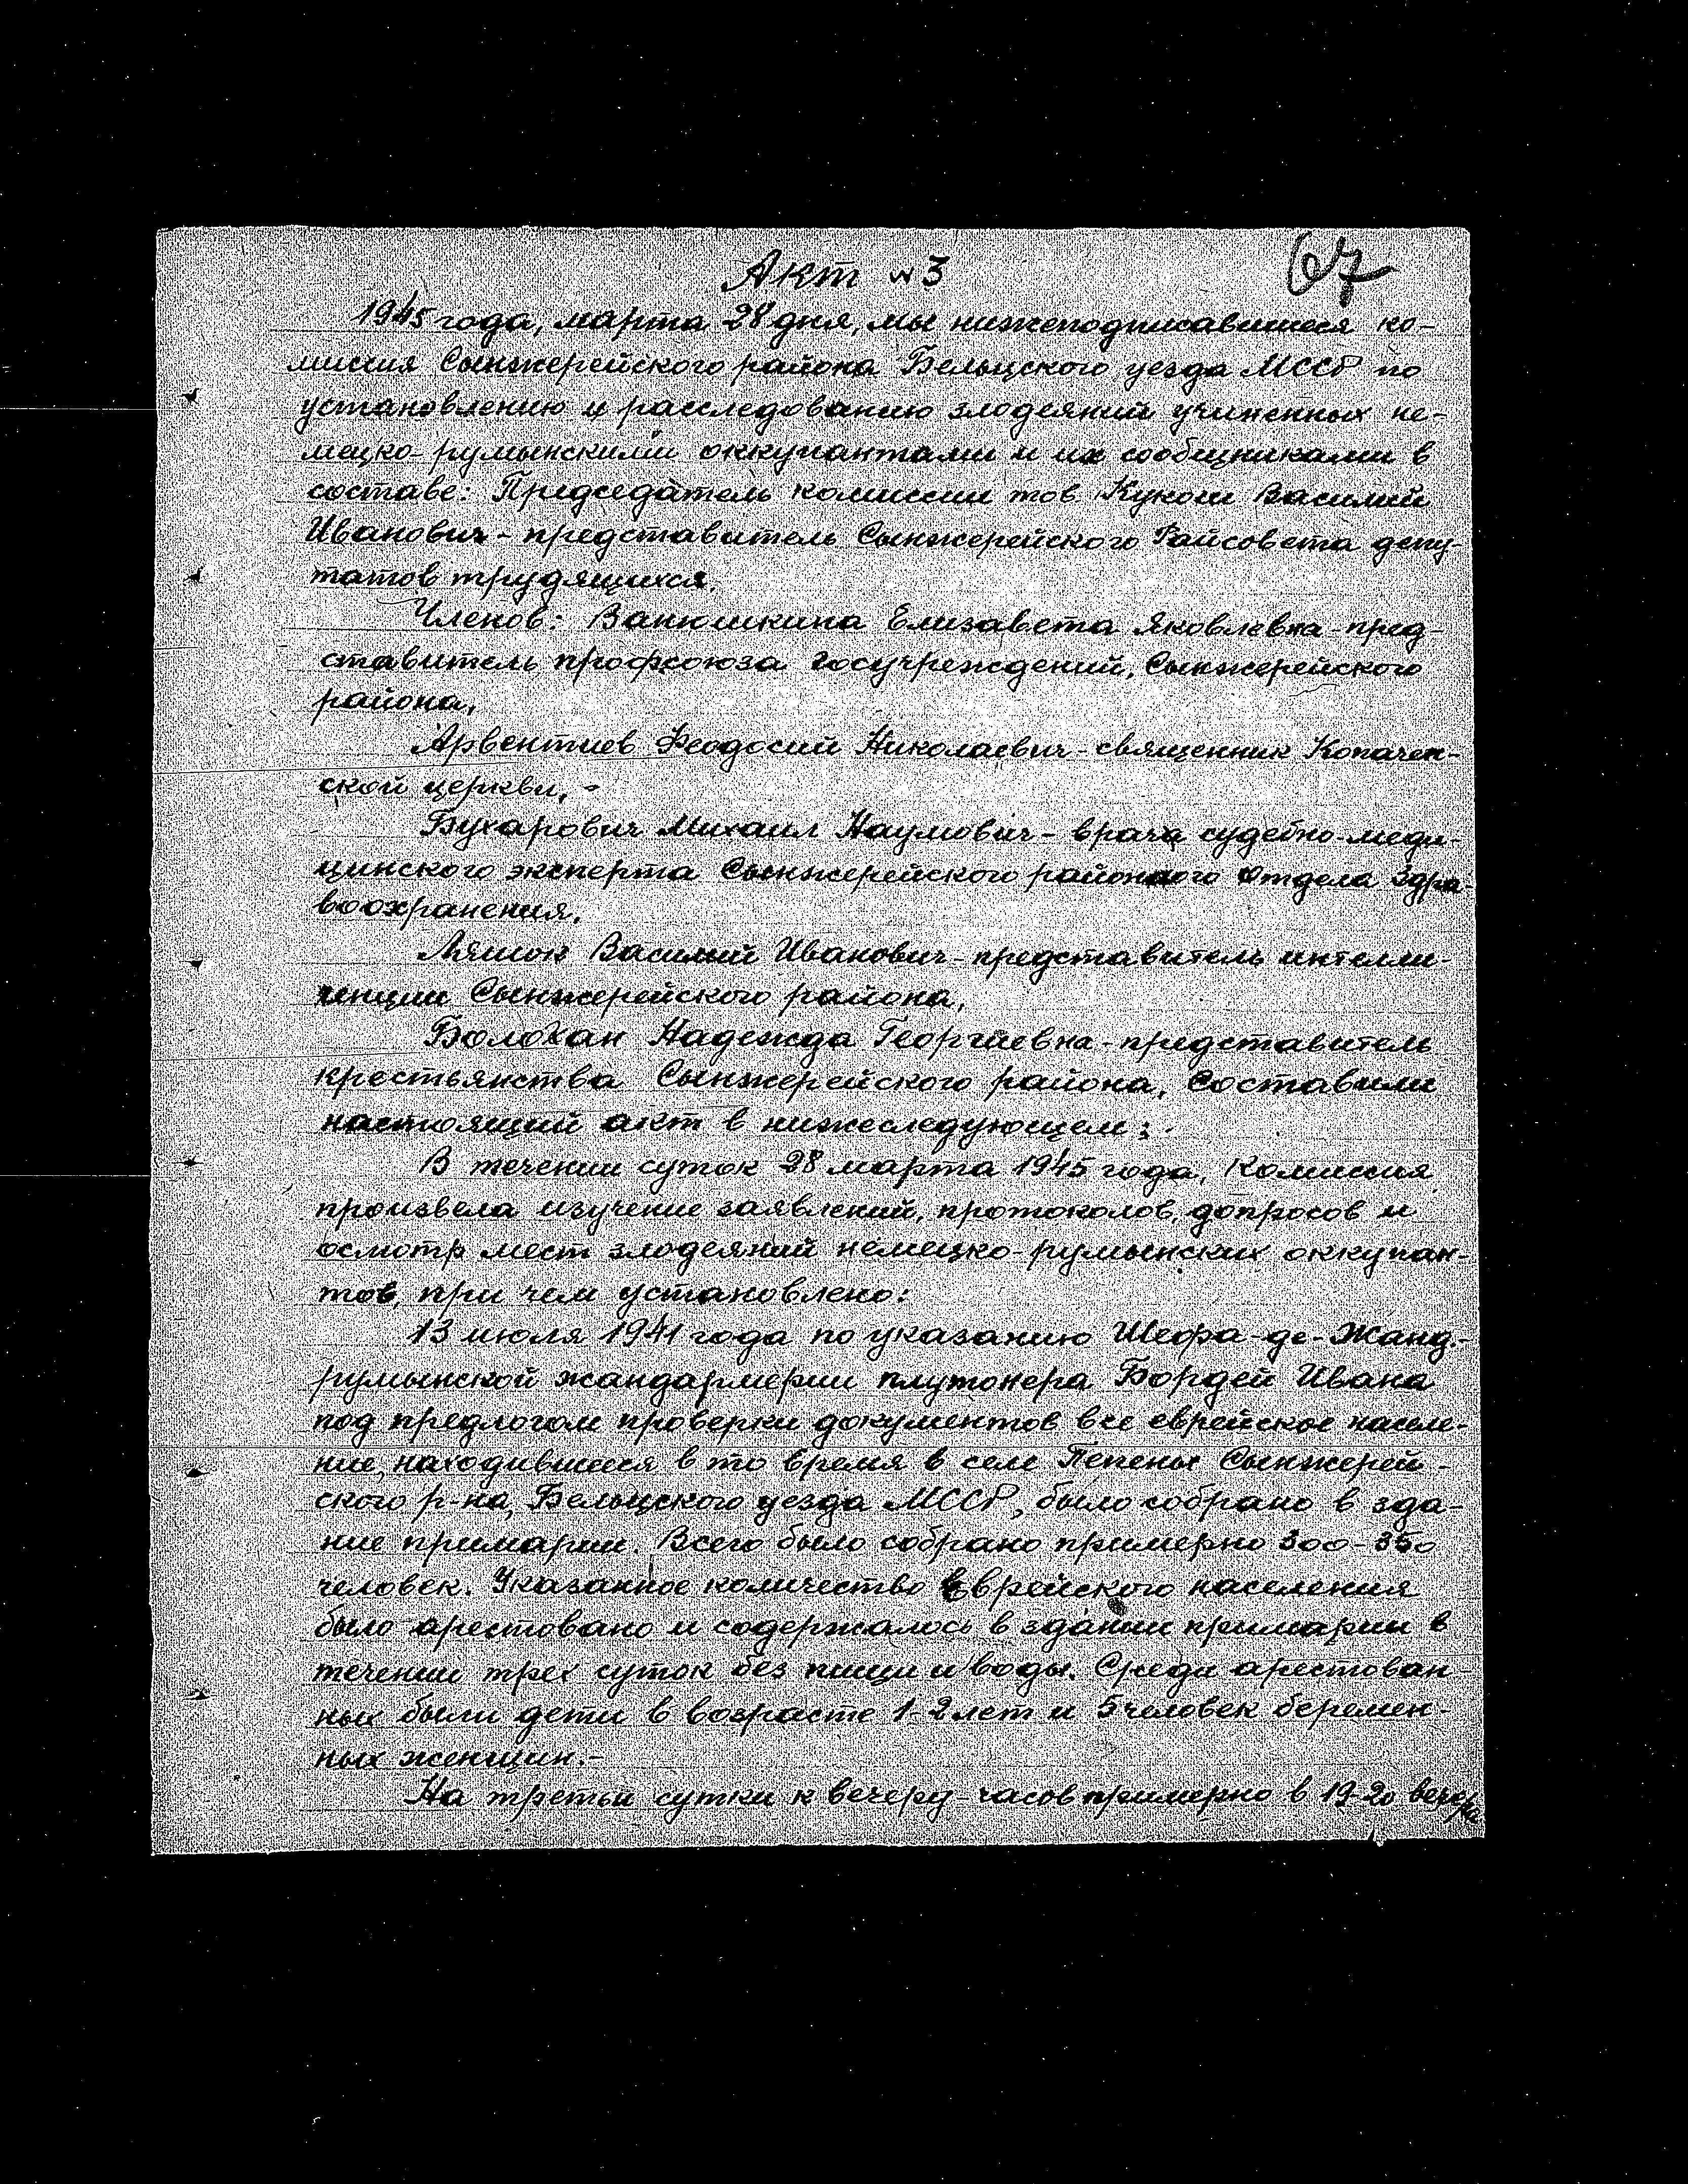 67
Акт № 3
1945 года, марта 28 дня, мы нижеподписавшиеся ко-
миссия Сынжерейского района Бельцского уезда МССР по
установлению и расследованию злодеяний учиненных не-
мецко-румынскими оккупантами и их сообщниками в
составе: Председатель комиссии тов. Кукош Василий
Иванович - представитель Сынжерейского Райсовета депу-
татов трудящихся.
Членов: Ванюшкина Елизавета Яковлевна - пред-
ставитель профсоюза Госучреждений, Сынжерейского
района,
Арвентиев Феодосий Николаевич - священник Копачен-
ской церкви, -
Бухарович Михаил Наумович - врача судебно-меди-
цинского эксперта Сынжерейского районного Отдела Здра-
воохранения.
Василий Иванович - представитель интелли-
генции Сынжерейского района,
Болохан Надежда Георгиевна - представитель
крестьянства Сынжерейского района, составили
настоящий акт в нижеследующем:
В течении суток 28 марта 1945 года, Комиссия
произвела изучение заявлений, протоколов, допросов и
осмотр мест злодеяний немецко-румынских оккупан-
тов, при чем установлено:
13 июля 1941 года по указанию Шефа-де-Жанд.-
румынской жандармерии плутонера Бордей Ивана
под предлогом проверки документов все еврейское населе-
ние, находившееся в то время в селе Пепены Сынжерей-
ского р-на, Бельцского уезда МССР, было собрано в зда-
ние примарии. Всего было собрано примерно 300-350
человек. Указанное количество Еврейского населения
было арестовано и содержалось в здании примарии в
течении трех суток без пищи и воды. Среди арестован-
ных были дети в возрасте 1-2 лет и 5 человек беремен-
ных женщин.-
На третьи сутки к вечеру-часов примерно в 19-20 вечера